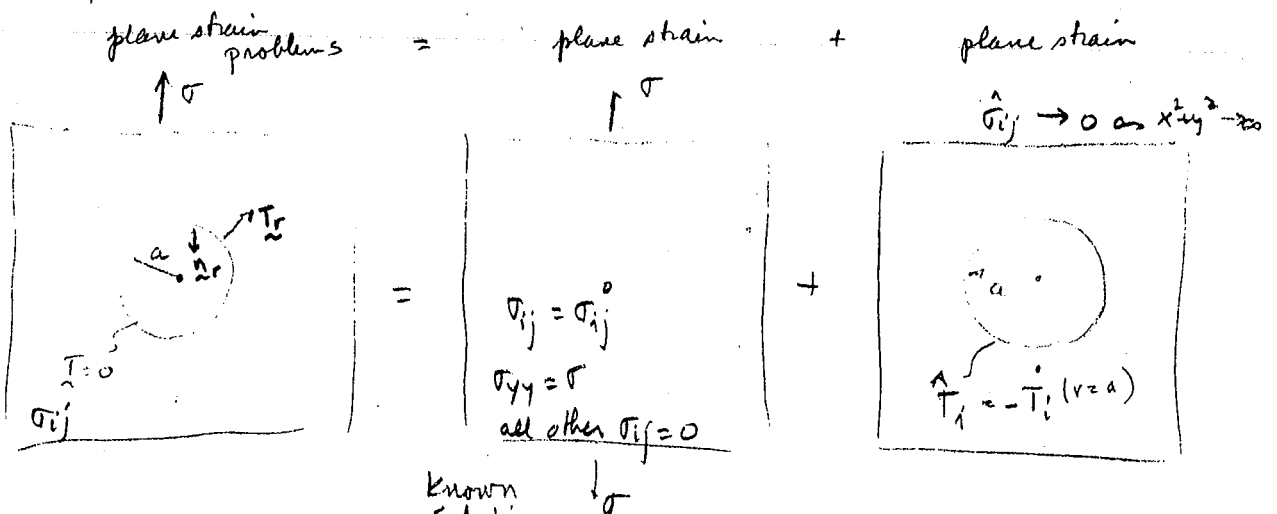 plane strain problems = plane strain + plane strain
↑ σ
↑ σ
σ̂ij → 0 as x²+y² → ∞
a
n r
T r
T = 0
σij
=
σij = σ°ij
σyy = σ
all other σij = 0
+
a
T̂i = - T°i (r = a)
Known
↓ σ